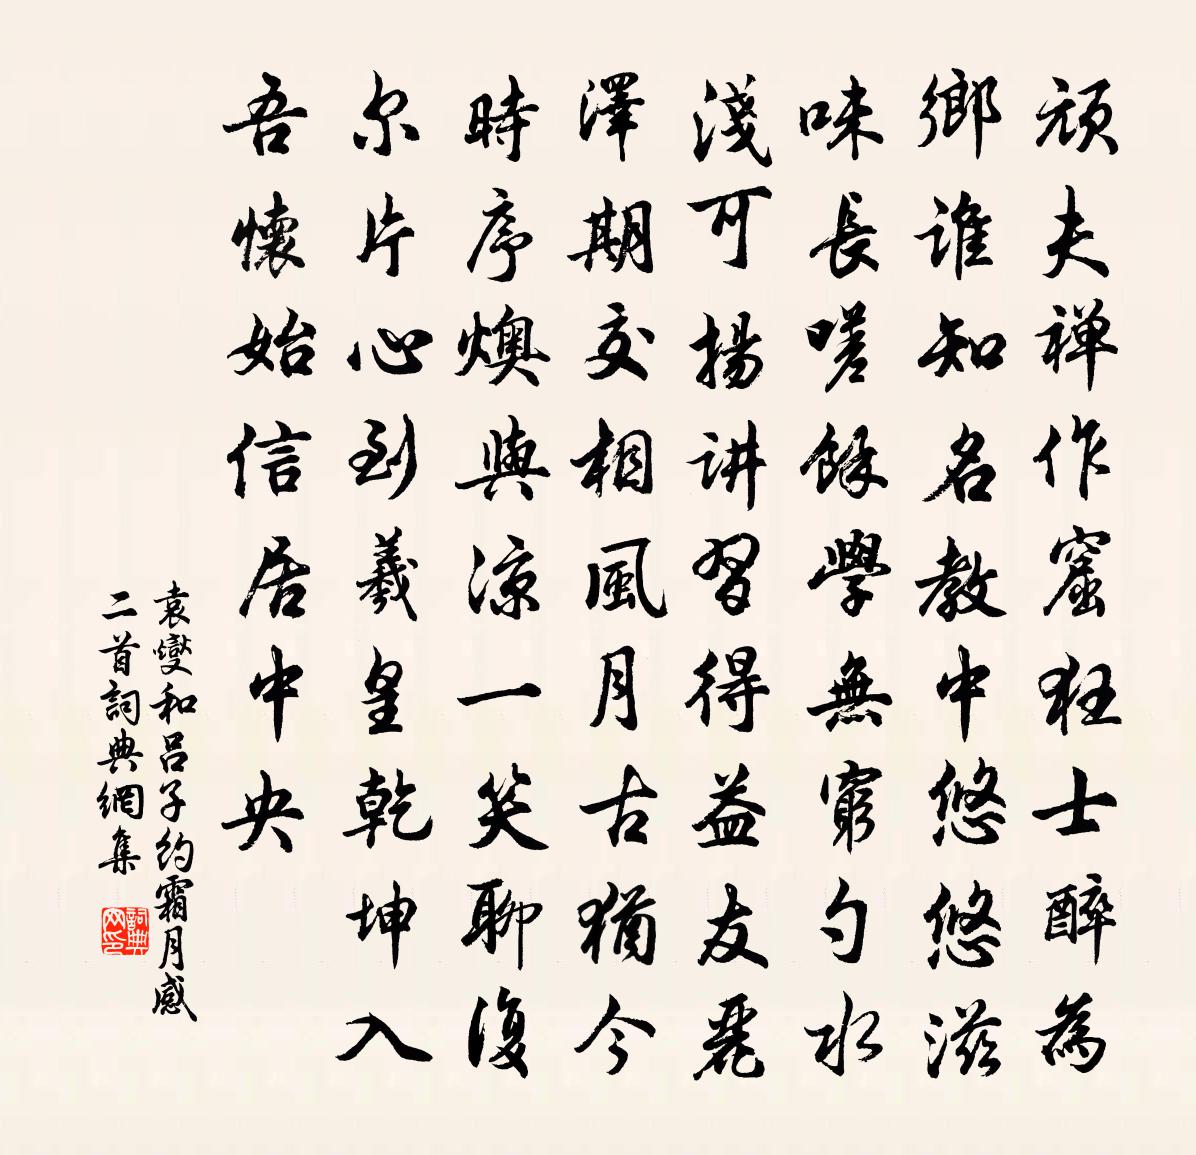 頑夫禅作窟狂士醉為
鄉誰知名教中悠悠滋
味長嗟餘學無窮勺水
淺可揚讲習得益友麗
澤期交相風月古猶今
時序燠與涼一笑聊復
尔片心到羲皇乾坤入
吾懷始信居中央
袁燮和呂子約霜月感
二首詞典網集
詞典网印